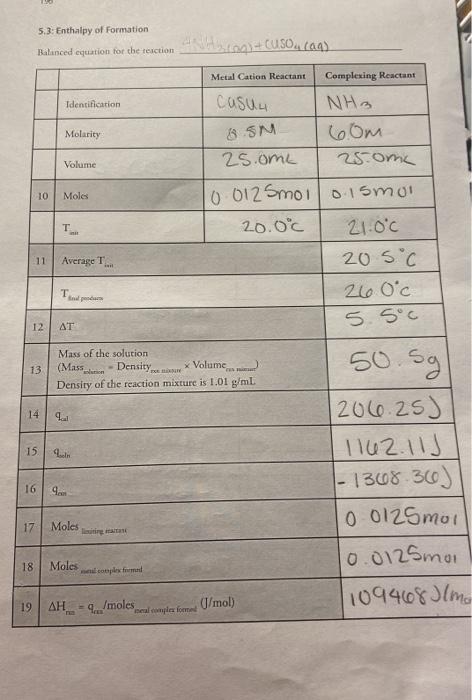 5.3: Enthalpy of Formation
Balanced equation for the reaction 4NH3(aq) + CUSO4 (aq)
Metal Cation Reactant Complexing Reactant
Identification CuSO4 NH3
Molarity .5M 6.0M
Volume 25.0mL 25.0mL
10 Moles 0.0125mol 0.15mol
T init 20.0°C 21.0°C
11 Average T init 20.5°C
T final products 26.0°C
12 ΔT 5.5°C
Mass of the solution
13 (Mass solution = Density rxn mixture × Volume rxn mixture) 50.5g
Density of the reaction mixture is 1.01 g/mL
14 q cal 206.25J
15 q soln 1162.11J
16 q rxn -1368.36J
17 Moles limiting reactant 0.0125mol
18 Moles metal complex formed 0.0125mol
19 ΔH rxn = q rxn/moles metal complex formed (J/mol) 109468J/mo